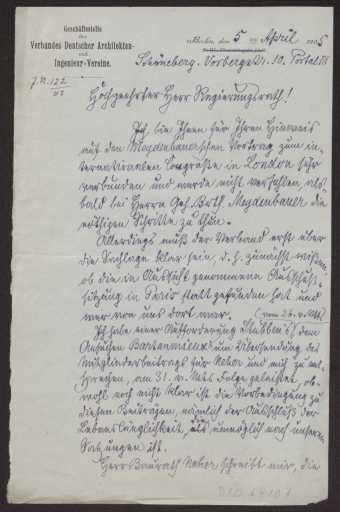 Geschäftsstelle
des
Verbandes Deutscher Architekten-
und
Ingenieur-Vereine.
Berlin, den 5 ten April 1905
Schöneberg. Vorbergstr. 10. Portal III
J.N. 122
05
Hochgeehrter Herr Regierungsrath!
Ich bin Ihnen für Ihren Hinweis
auf den Meydenbauer'schen Vortrag zum in-
ternationalen Congresse in London sehr
verbunden und werde nicht verfehlen, als-
bald bei Herrn Geh. Brth. Meydenbauer die
nöthigen Schritte zu thun.
Allerdings muß der Verband erst über
die Sachlage klar sein, d. h. zunächst wissen,
ob die in Aussicht genommene Ausschuß-
sitzung in Paris stattgefunden hat und
wer von uns dort war. (vom 26. v. Mts.)
Ich habe einer Aufforderung Stübben's dem
Ansuchen um Übersendung des
Mitgliederbeitrags für Neher und mich zu ent-
sprechen, am 31. v. Mts. Folge geleistet, ob-
wohl noch nicht klar ist die Vorbedingung zu
diesen Beiträgen, nämlich der Ausschluß der
Lebenslänglichkeit, als unmöglich nach unseren
Satzungen ist.
Herr Baurath Neher schreibt mir, die